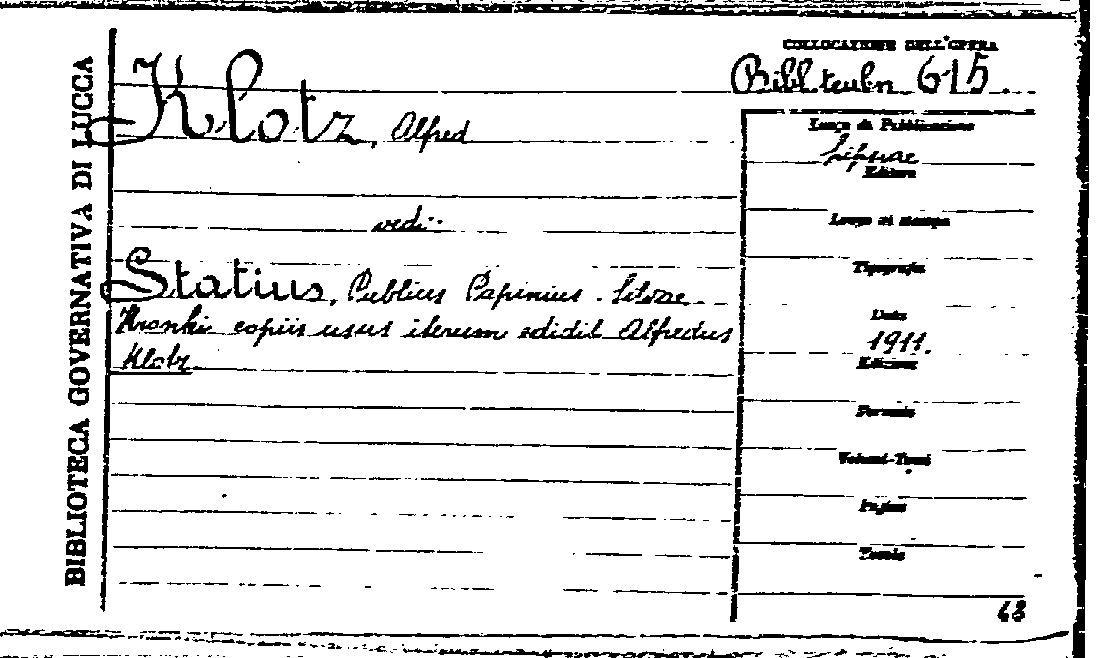 BIBLIOTECA GOVERNATIVA DI LUCCA
COLLOCAZIONE DELL'OPERA
Bibl. teubn. 615.
Klotz, Alfred
vedi:
Statius, Publius Papinius. Silvae.
copiis usus iterum edidit Alfredus
Klotz
Luogo di Pubblicazione
Lipsiae
Editore
Luogo di stampa
Tipografia
Data
1911.
Edizione
Formato
Volumi-Tomi
Pagine
Tavole